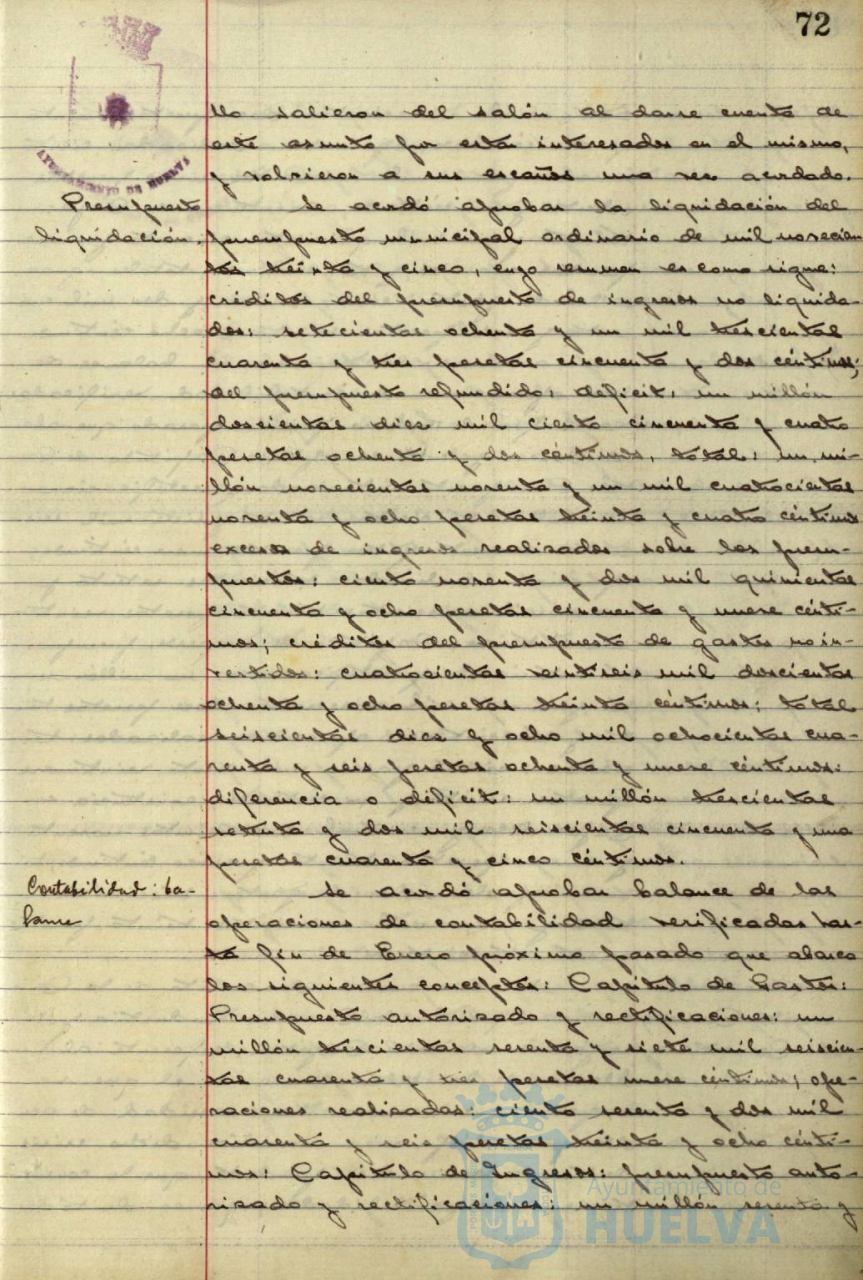 72
AYUNTAMIENTO DE HUELVA
llo salieron del salón al darse cuenta de
este asunto por estar interesados en el mismo,
y volvieron a sus escaños una vez acordado.
Presupuesto
liquidación.
Se acordó aprobar la liquidación del
presupuesto municipal ordinario de mil novecien-
tos treinta y cinco, cuyo resumen es como sigue:
créditos del presupuesto de ingresos no liquida-
dos: setecientas ochenta y un mil trescientas
cuarenta y tres pesetas cincuenta y dos céntimos;
del presupuesto refundido, déficit, un millón
doscientas diez mil ciento cincuenta y cuatro
pesetas ochenta y dos céntimos, total: un mi-
llón novecientas noventa y un mil cuatrocientas
noventa y ocho pesetas treinta y cuatro céntimos
excesos de ingresos realizados sobre los presu-
puestos: ciento noventa y dos mil quinientas
cincuenta y ocho pesetas cincuenta y nueve cénti-
mos; créditos del presupuesto de gastos no in-
vertidos: cuatrocientas veintiseis mil doscientas
ochenta y ocho pesetas treinta céntimos; total
seiscientas diez y ocho mil ochocientas cua-
renta y seis pesetas ochenta y nueve céntimos:
diferencia o déficit: un millón trescientas
setenta y dos mil seiscientas cincuenta y una
pesetas cuarenta y cinco céntimos.
Contabilidad: ba-
lance
Se acordó aprobar balance de las
operaciones de contabilidad verificadas has-
ta fin de Enero próximo pasado que abarca
los siguientes conceptos: Capítulo de Gastos:
Presupuesto autorizado y rectificaciones: un
millón trescientas sesenta y siete mil seiscien-
tas cuarenta y tres pesetas nueve céntimos; ope-
raciones realizadas: ciento sesenta y dos mil
cuarenta y seis pesetas treinta y ocho cénti-
mos: Capítulo de Ingresos: presupuesto auto-
rizado y rectificaciones: un millón sesenta y
Ayuntamiento de
HUELVA